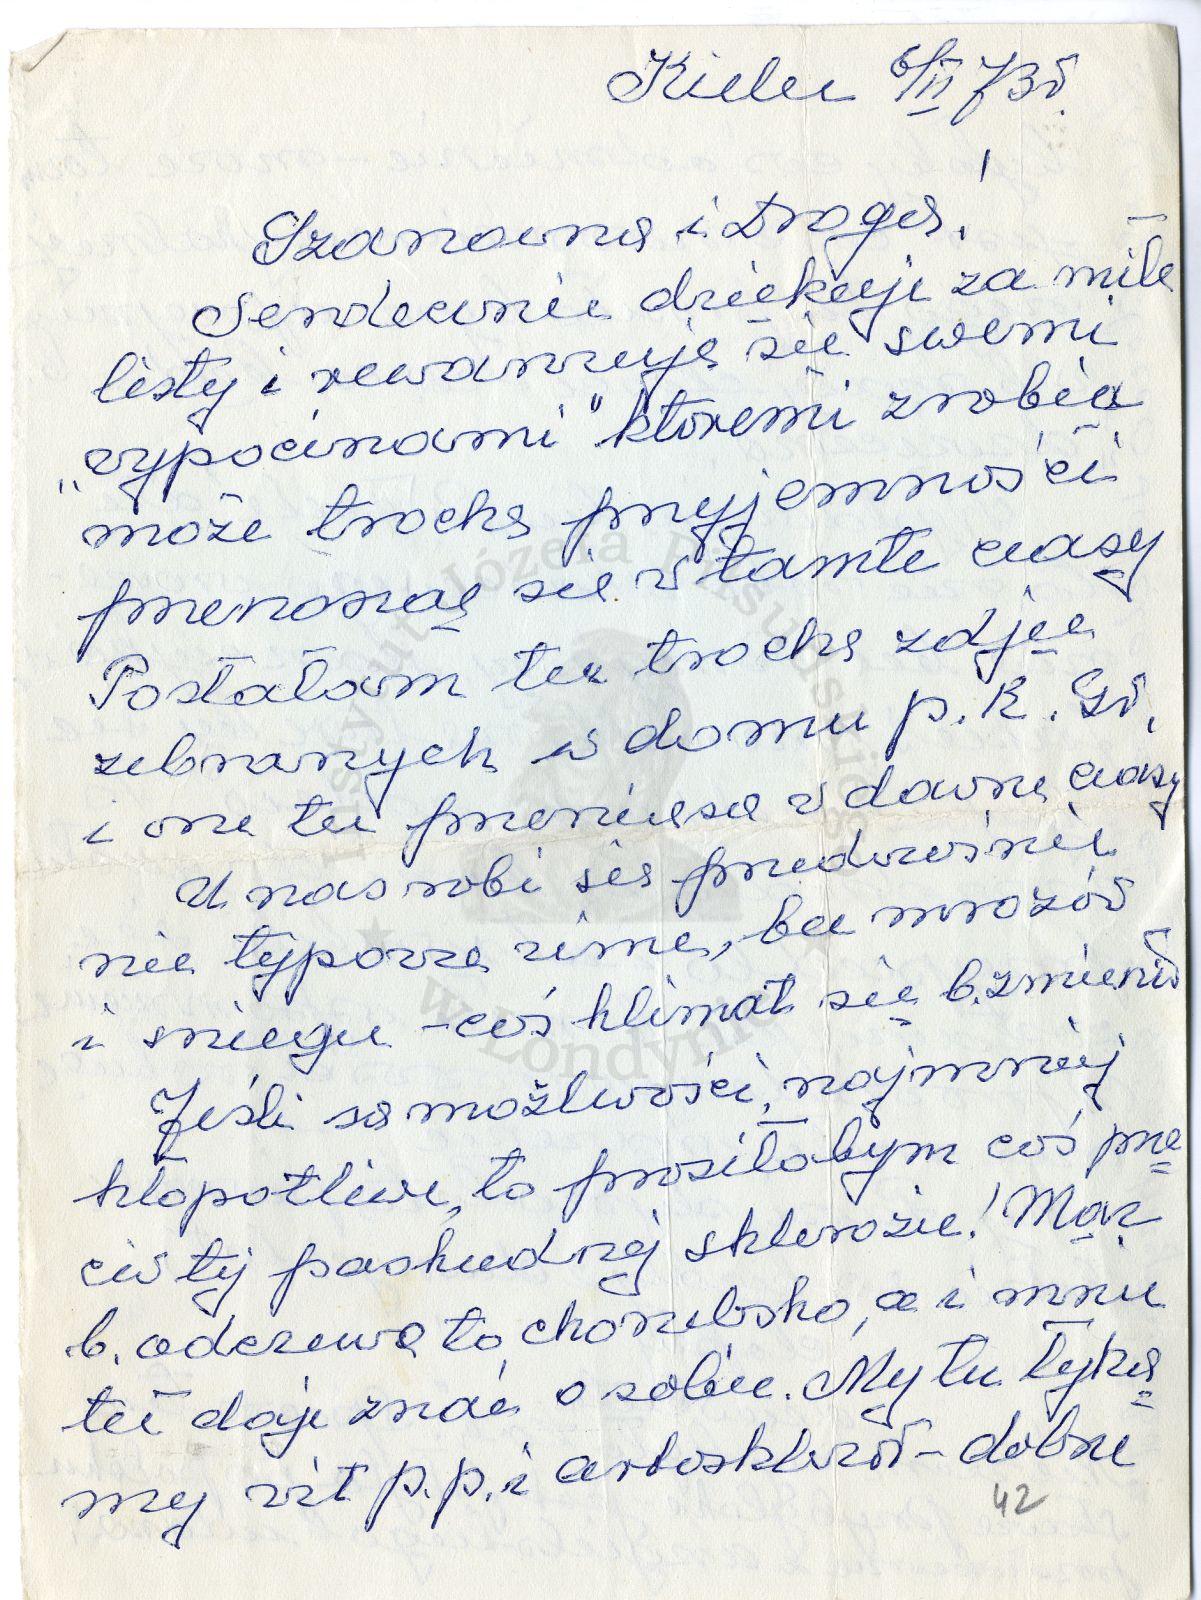 Kielce 6/II 73 r.
Szanowna i Droga!
Serdecznie dziękuję za miłe
listy i rewanżuję się swemi
„wypocinami" któremi zrobię
może trochę przyjemności
przenosząc się w tamte czasy
Posłałam też trochę zdjęć
zebranych w domu p. R. Gł.
i one tu przeniosą w dawne czasy
U nas robi się przedwiośnie
nie typowa zima, bez mrozów
i śniegu - coś klimat się b. zmienił
Jeśli są możliwości, najmniej
kłopotliwe, to prosiłabym coś prze
ciw tej paskudnej sklerozie! Mąż
b. odczuwa to chorubsko, a i mnie
też daje znać o sobie. My tu łyka
my wit p.p. i arteosklerol - dobrze
42
Instytut Józefa Piłsudskiego
w Londynie